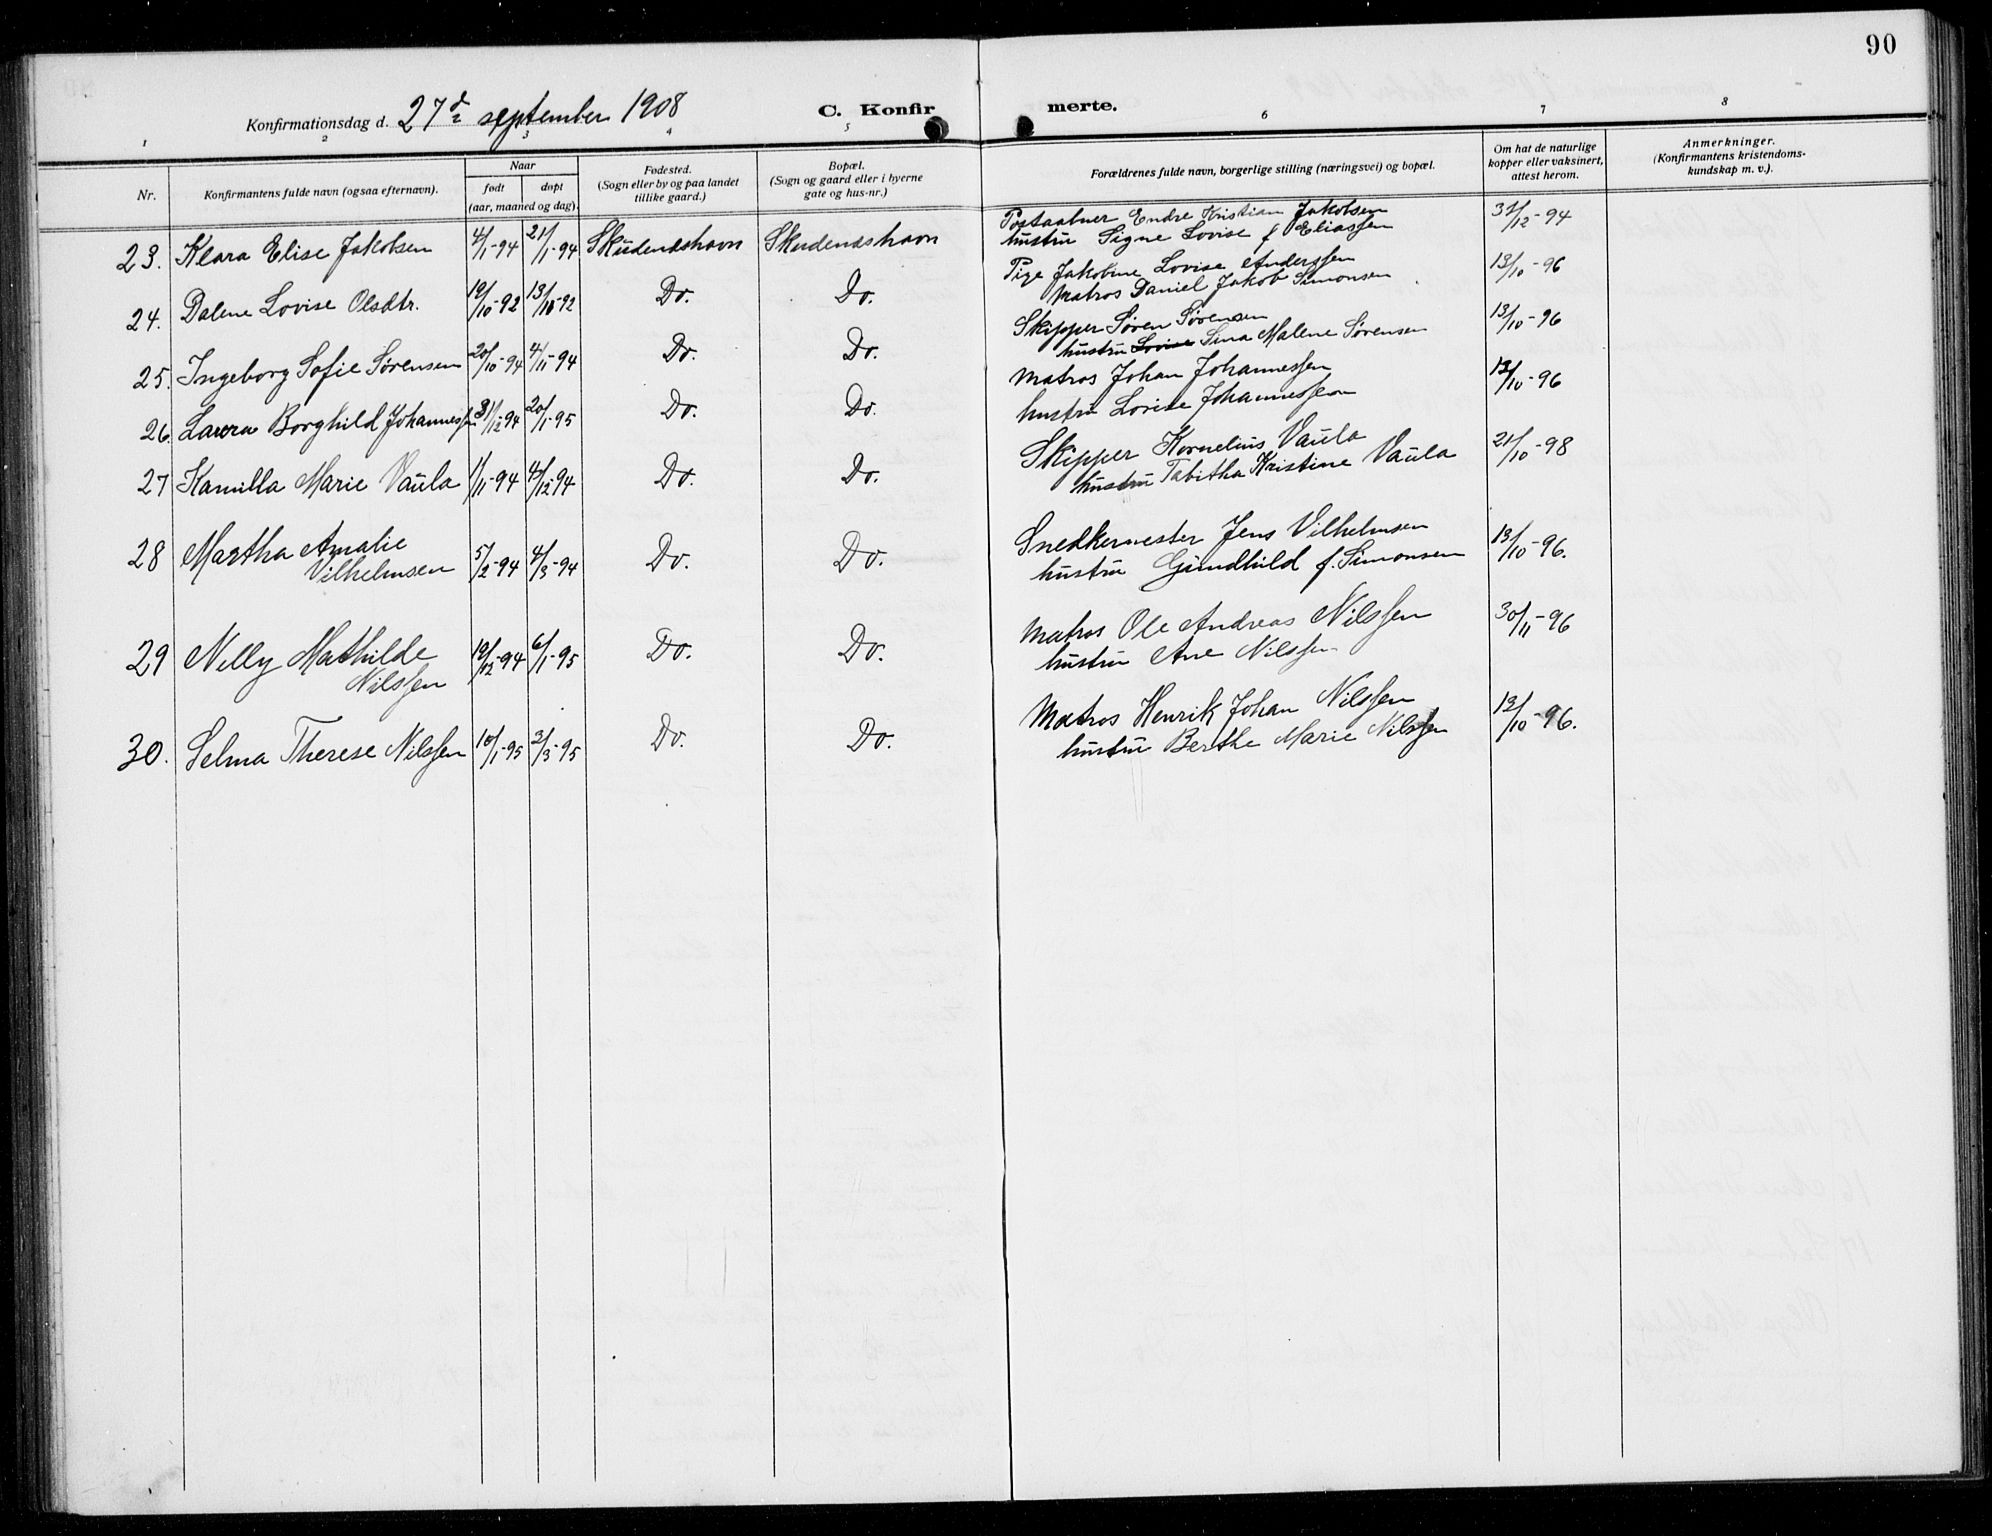 90
Konfirmationsdag d. 27de september 1908 C. Konfirmerte.
1 2 3 4 5 6 7 8
Nr. Konfirmantens fulde navn (ogsaa efternavn). Naar født døpt (aar, maaned og dag). Fødested. (Sogn eller by og paa landet tillike gaard.) Bopæl. (Sogn og gaard eller i byerne gate og hus-nr.) Forældrenes fulde navn, borgerlige stilling (næringsvei) og bopæl. Om hat de naturlige kopper eller vaksinert, attest herom. Anmerkninger. (Konfirmantens kristendoms-kundskap m. v.).
23. Klara Elise Jakobsen 4/1-94 21/1-94 Skudeneshavn Skudeneshavn Postaabner Endre Kristian Jakobsen 31/12-94
hustru Signe Lovise f Eliassen
24. Dalene Lovise Olsdtr. 19/10-92 13/11-92 Do. Do. Pige Jakobine Lovise Anderssen 13/10-96
Matros Daniel Jakob Simonsen
25. Ingeborg Sofie Sørensen 20/10-94 4/11-94 Do. Do. Skipper Søren Sørensen 13/10-96
hustru Lovise Sina Malene Sørensen
26. Laura Borghild Johannessen 31/12-94 20/1-95 Do. Do. Matros Johan Johannessen 13/10-96
hustru Lovise Johannessen
27 Kamilla Marie Vaula 1/11-94 4/12-94 Do. Do. Skipper Kornelius Vaula 21/10-98
hustru Tabitha Kristine Vaula
28 Martha Amalie Vilhelmsen 5/2-94 4/3-94 Do. Do. Snedkermester Jens Vilhelmsen 13/10-96.
hustru Gundhild f. Simonsen
29 Nelly Mathilde Nilssen 19/12-94 6/1-95 Do. Do. Matros Ole Andreas Nilssen 30/11-96
hustru Ane Nilssen
30. Selma Therese Nilssen 10/1-95 3/3-95 Do. Do. Matros Henrik Johan Nilssen 13/10-96.
hustru Berthe Marie Nilssen